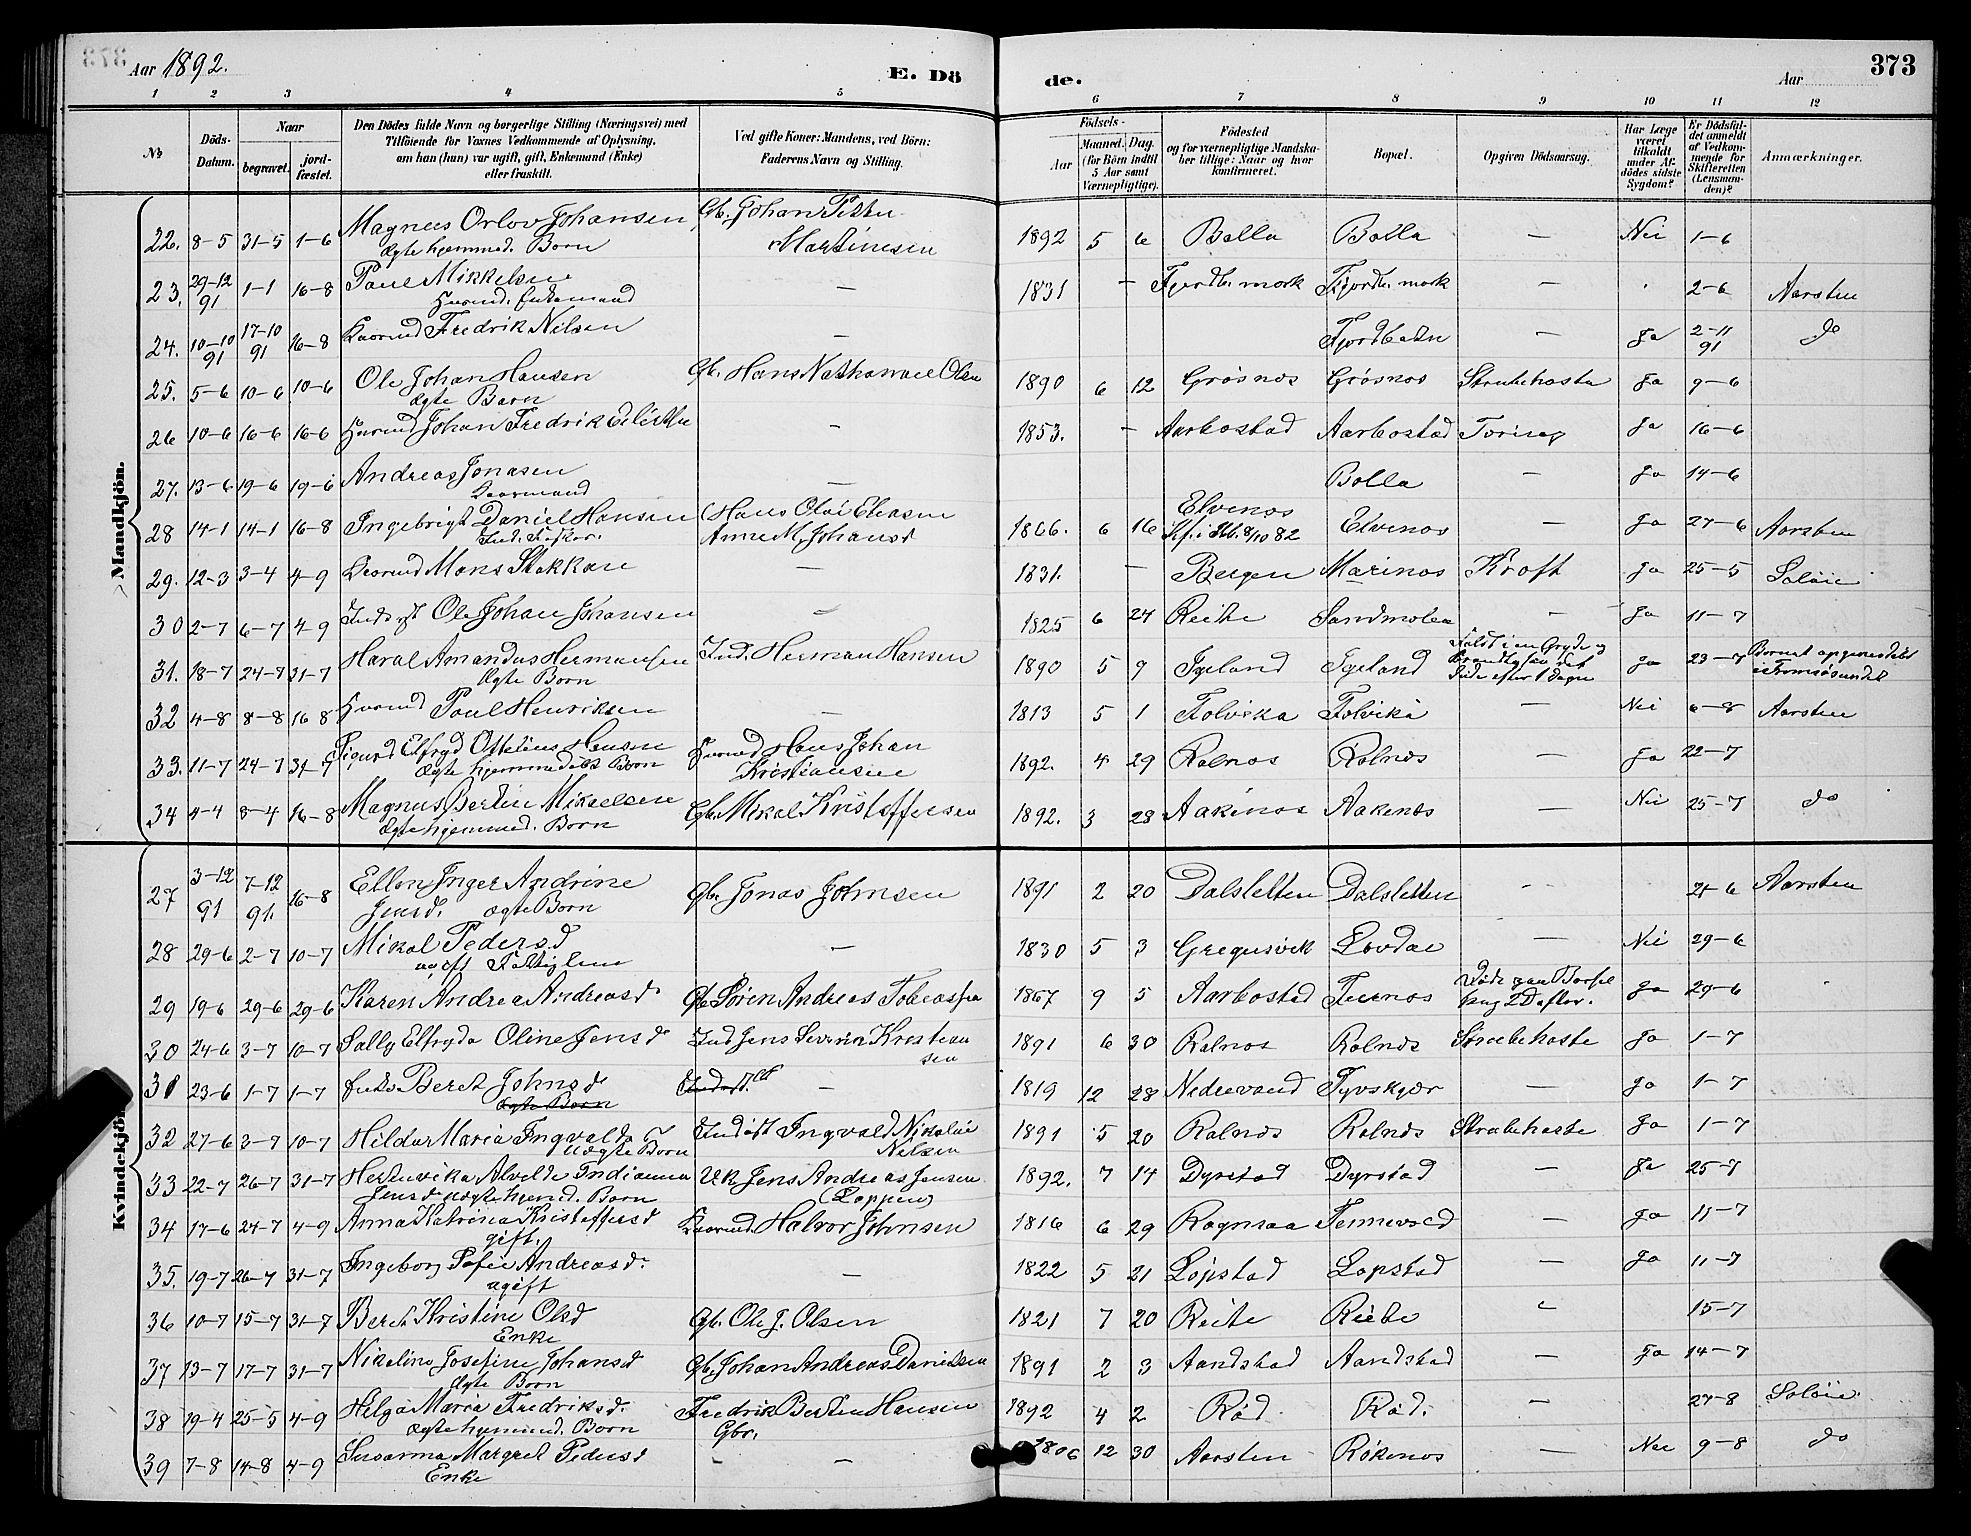 Aar 1892. E. Dö de. Aar 373
1 2 3 4 5 6 7 8 9 10 11 12
№ Döds-Datum. Naar begravet. jord-fæstet. Den Dödes fulde Navn og borgerlige Stilling (Næringsvei) med Tilföiende for Voxnes Vedkommende af Oplysning, om han (hun) var ugift, gift, Enkemand (Enke) eller fraskilt. Ved gifte Koner: Mandens, ved Börn: Faderens Navn og Stilling. Födsels- Aar Maaned. Dag. (for Börn indtil 5 Aar samt Værnepligtige). Födested og for værnepligtige Mandskaber tillige: Naar og hvor konfirmeret. Bopæl. Opgiven Dödsaarsag. Har Læge været tilkaldt under Afdödes sidste Sygdom? Er Dödsfaldet anmeldt af Vedkommende for Skifteretten (Lensmanden)? Anmærkninger.
Mandkjön.
22. 8-5 31-5 1-6 Magnus Orlov Johansen Gb. Johan Peter 1892 5 6 Bolla Bolla — Nei 1-6
Ægte hjemmed. Barn Martinesen
23. 29-12 91 1-1 16-8 Paul Mikkelsen — 1831 — Fjordb. mark Fjordb. mark — 2-6 Aarsten
Husmd. Enkemand
24. 10-10 91 17-10 91 16-8 Kaarmd Fredrik Nilsen — Fjordbotn — Ja 2-11 91 do
25. 5-6 10-6 10-6 Ole Johan Hansen Gb. Hans Nathanael Olsen 1890 6 12 Grøsnes Grøsnes Strubehoste Ja 9-6
Ægte Barn
26 10-6 16-6 16-6 Husmd Johan Fredrik — 1853. — Aarbostad Aarbostad Tæring Ja 16-6
27. 13-6 19-6 19-6 Andreas Jonasen — Bolla — Ja 14-6
Kaarmand
28 14-1 14-1 16-8 Ingebrigt Daniel Hansen Hans Olai Eliasen 1866. 6 16 Elvenes Elvenes — Ja 27-6 Aarsten
Ind. Fisker. Anne M. Johansd Kf. i 8/10 82
29. 12-3 3-4 4-9 Kaarmd Mons Stakkan — 1831. — Bergen Marinæs Kræft Ja 25-5 Soløie
30 2-7 6-7 4-9 Inderst Ole Johan Johansen — 1825 6 24 Reite Sandmolen — Ja 11-7
31. 18-7 24-7 31-7 Haral Amandus Hermansen Ind. Herman Hansen 1890 5 9 Igeland Igeland Faldt i en Gryde og Ja 23-7 Barnet
Ægte Barn døde efter 1 Dagn i Tromsøsundet
32 4-8 8-8 16-8 Husmd Paul Henriksen — 1813 5 1 Folvika Folvika — Nei 6-8 Aarsten
33. 11-7 24-7 31-7 Sigurd Elfryd Ottelius Hansen Husmd Hans Johan 1892. 4 29 Rolnes Rolnes — Ja 22-7
Ægte hjemmedøbt Barn Kristiansen
34 4-4 8-4 16-8 Magnus Bertin Mikaelsen Gb. Mikal Kristoffersen 1892. 3 28 Aakenes Aakenes — Nei 25-7 do
Ægte hjemmed. Barn
Kvindekjön.
27 3-12 91 7-12 91. 16-8 Ellen Inger Andrine Gb. Jonas Johnsen 1891 2 20 Dalsletten Dalsletten — 24-6 Aarsten
Jensd. Ægte Barn
28 29-6 2-7 10-7 Mikal Pedersd — 1830 5 3 Gregusvik Løvdal — Nei 29-6
ugift Fattiglem
29 19-6 29-6 29-6 Karen Andrea Andreasd Gb Søren Andreas Tobiassen 1867 9 5 Aarbostad Ja 29-6
30 24-6 3-7 10-7 Sally Elfryda Oline Jensd Ind Jens Severin Kristiansen 1891 6 30 Rolnes Rolnes Strubehoste Ja 1-7
31 23-6 1-7 1-7 Enke Beret Johnsd Inderst — 1819 12 28 Nedrevand Tyvskjær — Ja 1-7
Ægte Barn
32 27-6 3-7 10-7 Hilda Maria Ingvaldsd Inderst Ingvald Nikolai 1891 5 20 Rolnes Rolnes Strubehoste Ja 1-7
Uægte Barn Nelsen
33 22-7 26-7 31-7 Hedevika Alvilde Indianna Uk Jens Andreas Jensen 1892. 7 14 Dyrstad Dyrstad — Ja 25-7
Jensd uægte hjemd. Barn (Loppen)
34 17-6 24-7 4-9 Anna Katrina Kristoffersd Kaarmd. Halvor Johnsen 1816 6 29 Rognsaa Tennevold — Ja 11-7
gift.
35. 19-7 26-7 31-7 Ingeborg Sofie Andreasd. — 1822 5 21 Løpstad Løpstad — Ja 11-7
ugift
36 10-7 15-7 31-7 Beret Kristine Olsd Gb. Ole J. Olsen 1821 7 20 Reite Reite — 15-7
Enke
37 13-7 17-7 31-7 Nikoline Josefine Johansd Gb. Johan Andreas Danielsen 1891 2 3 Aandstad Aandstad — Ja 14-7
Ægte Barn
38 19-4 25-5 4-9 Helga Maria Fredriksd. Fredrik Bertin Hansen 1892 4 2 Rød Rød. — 27-8 Soløie
Ægte hjemmd. Barn Gbr.
39 7-8 14-8 4-9 Susanna Margret Pedersd — 1806 12 30 Aarsten Røkenes — Nei 9-8 do
Enke